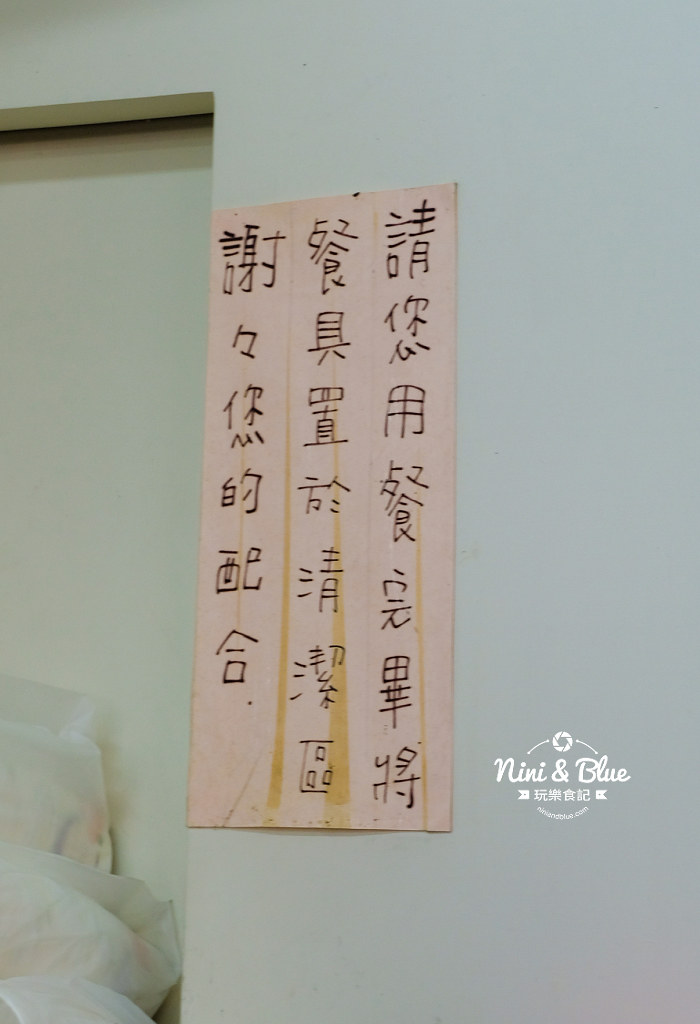 請您用餐完畢將
餐具置於清潔區
謝々您的配合.
Nini & Blue
玩樂食記
niniandblue.com